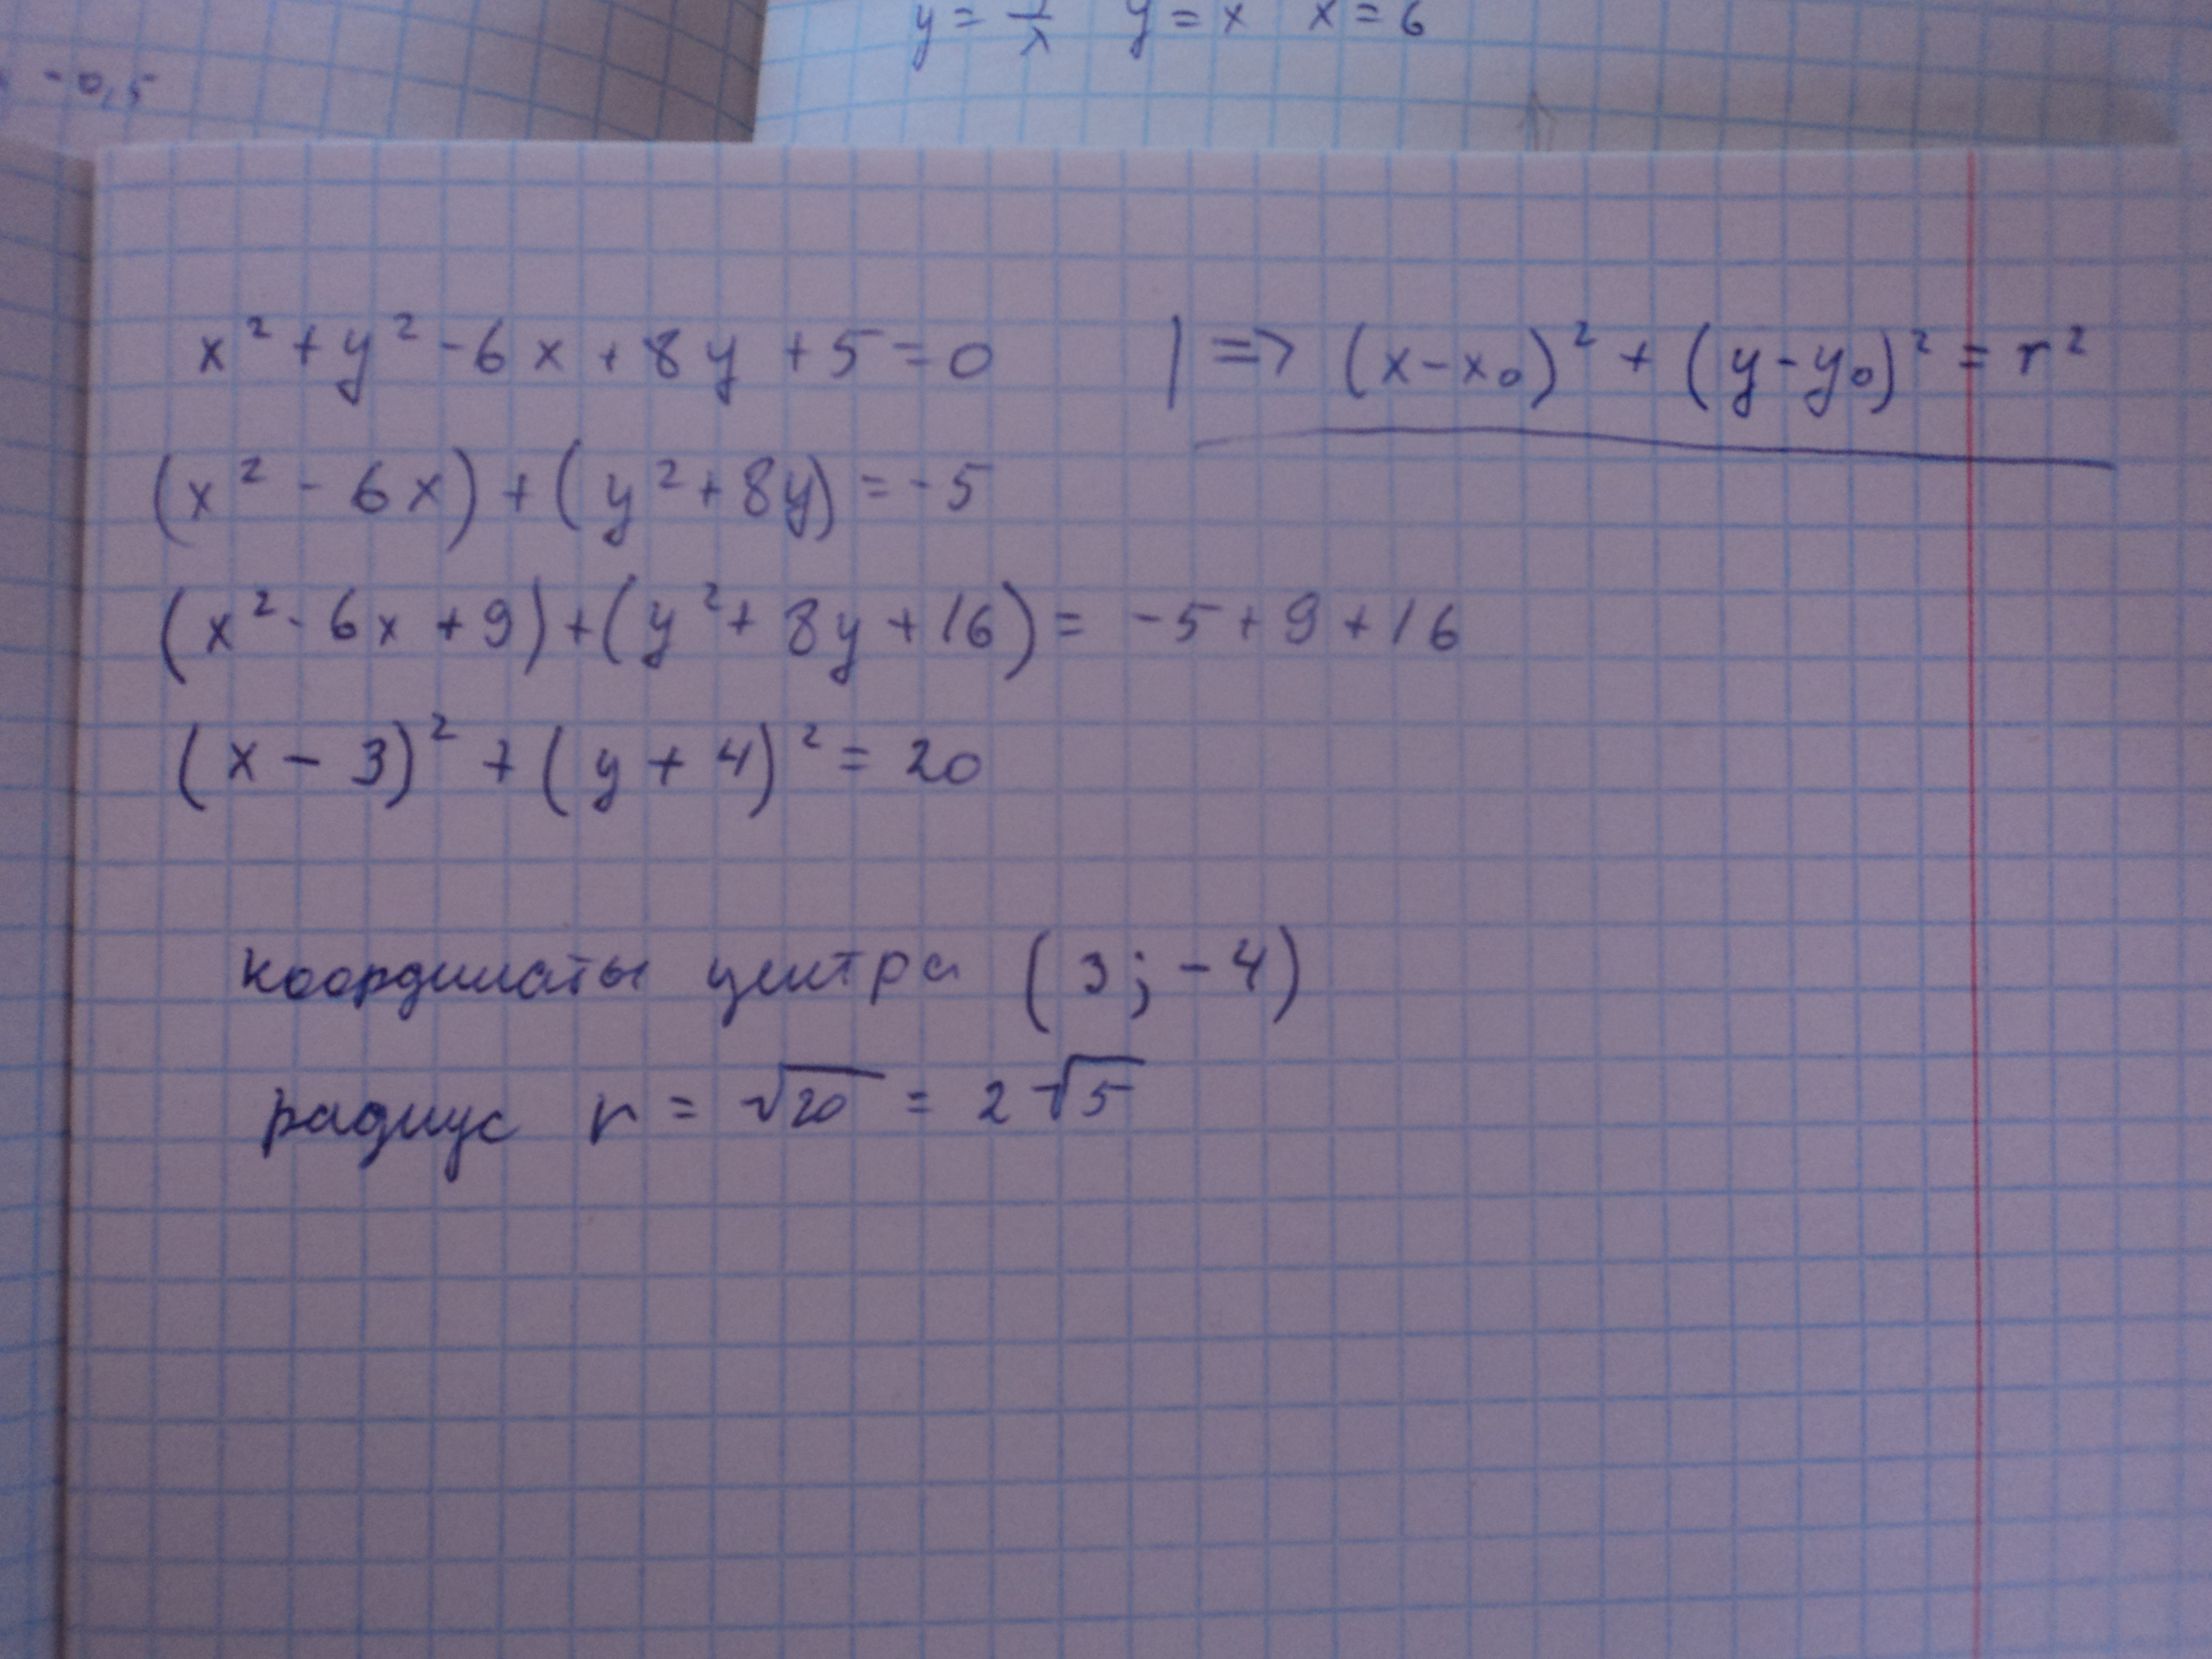 -0,5
y = 1/x y = x x = 6
x² + y² - 6x + 8y + 5 = 0 | => (x - x₀)² + (y - y₀)² = r²
(x² - 6x) + (y² + 8y) = -5
(x² - 6x + 9) + (y² + 8y + 16) = -5 + 9 + 16
(x - 3)² + (y + 4)² = 20
координаты центра (3; -4)
радиус r = √20 = 2√5